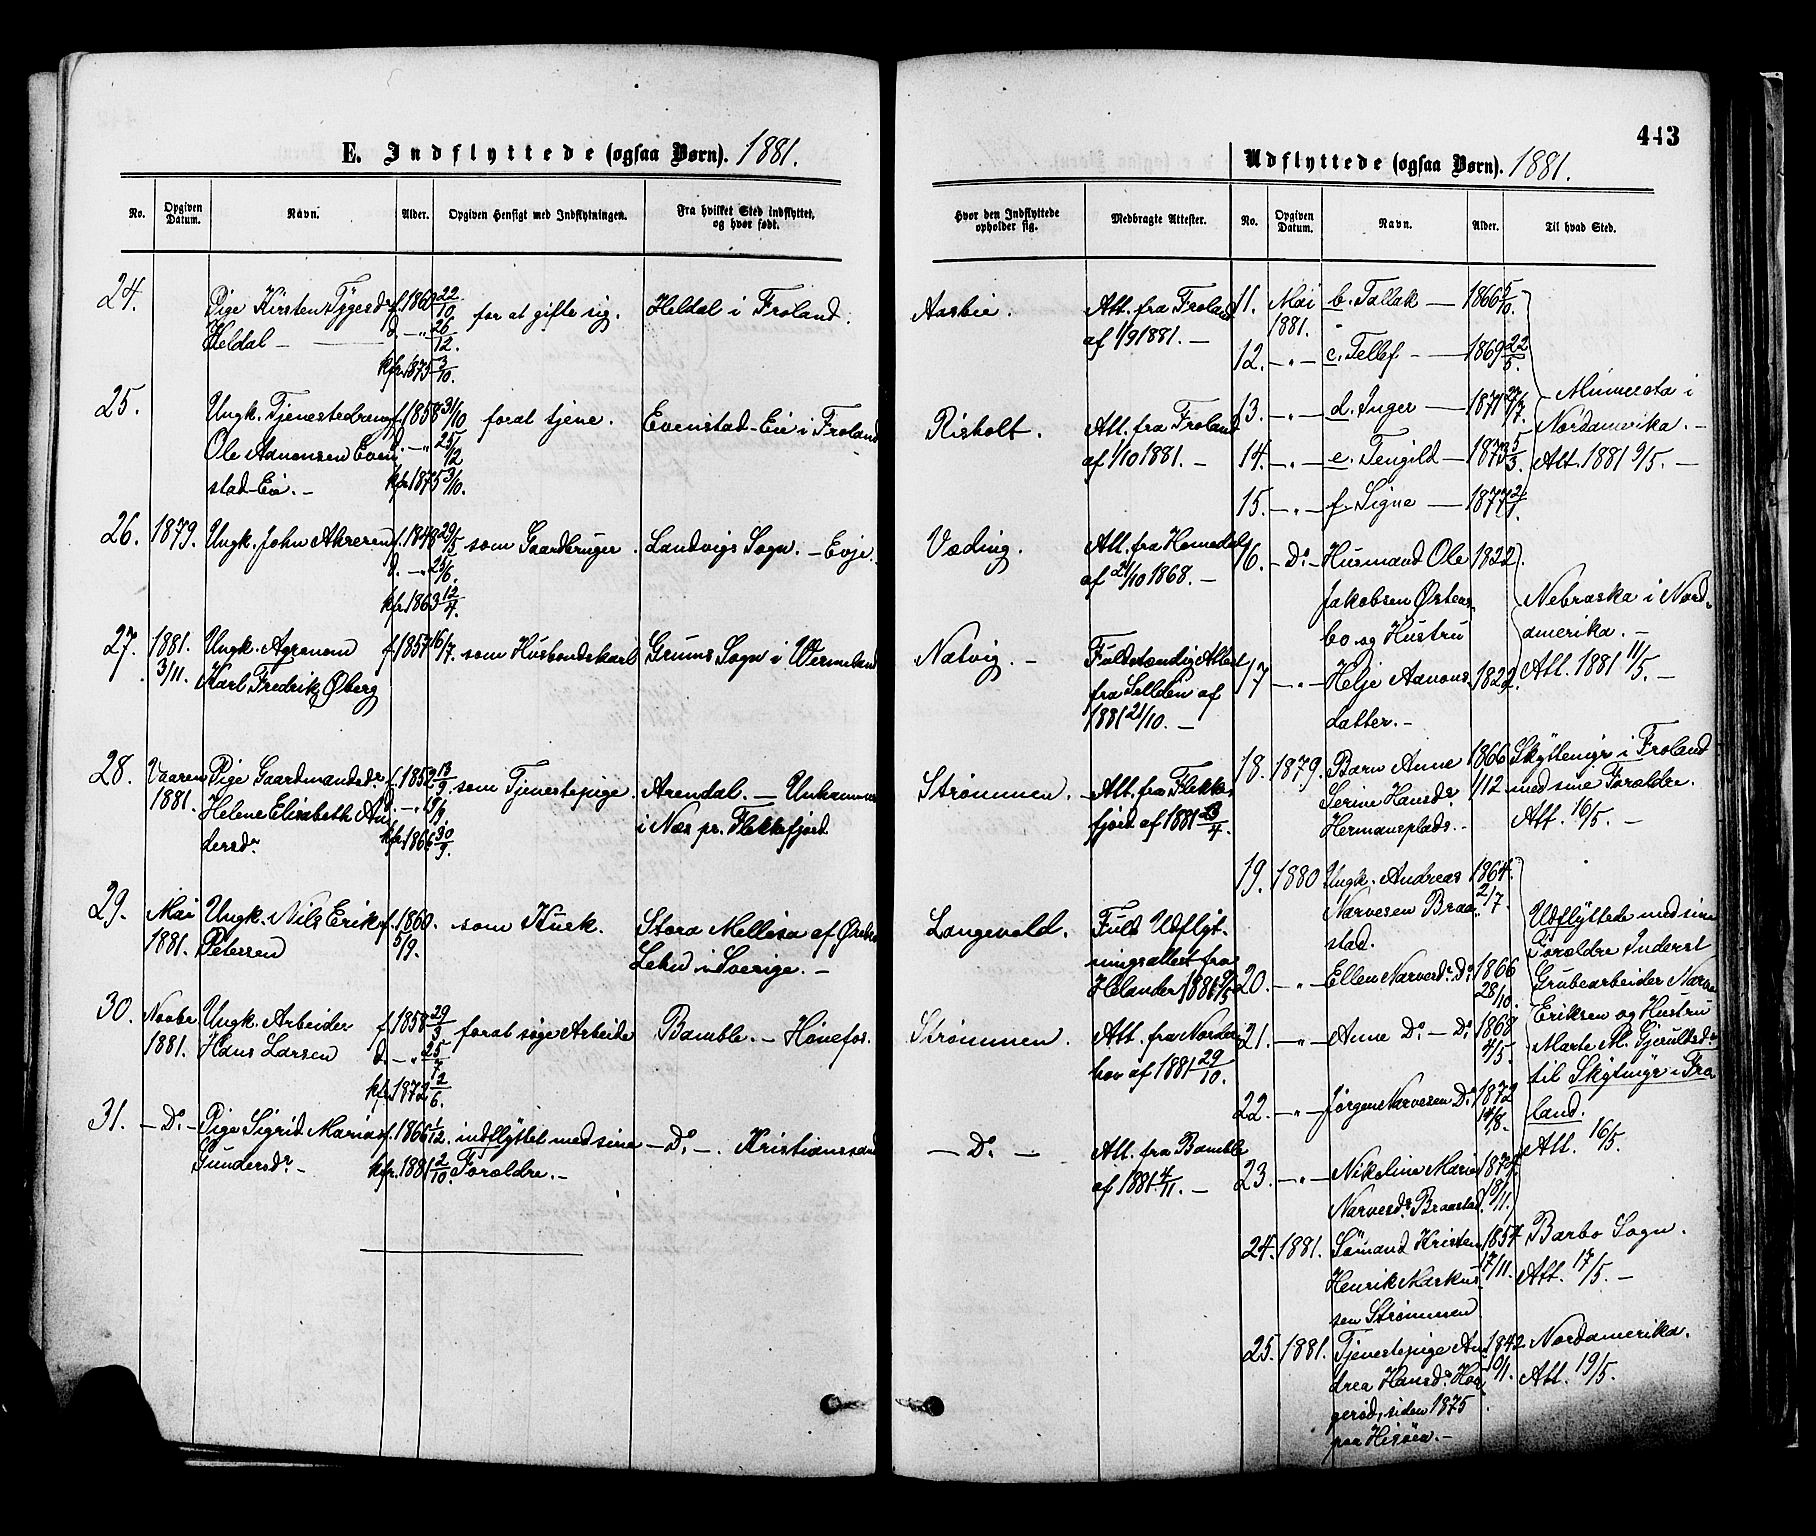 443
E. Indflyttede (ogsaa Børn). 1881.
No. Opgiven Datum. Navn. Alder. Opgiven Hensigt med Indflytningen. Fra hvilket Sted indflyttet, og hvor født. Hvor den Indflyttede opholder sig. Medbragte Attester.
24. Pige Kirsten Tygesdr f. 1860 22/10 for at gifte sig. Heldal i Froland. Aasbie. Att. fra Froland
Heldal — d. – „ 26/12. af 1/9 1881. –
kfr. 1875 3/10.
25. Ungk. Tjenestedreng f. 1858 31/10 forat tjene. Evenstad-Eie i Froland Risholt. Att. fra Froland
Ole Aanonsen Even d. – „ 25/12 af 1/10 1881. –
stad-Eie. – kfr. 1875 31/10.
26. 1879. Ungk. John Ahreren f. 1848 29/5 som Gaardbruger. Landvigs Sogn. – Evje. Væding. Att. fra Homedal
d. – „ 25/6. af 21/10 1868. –
kfr. 1863 12/4.
27. 1881. Ungk. Agronom f. 1857 16/7. som Husbondskarl Grums Sogn i Wermeland Natvig. – Fuldstændig Attest
3/11. Karl Fredrik Øberg fra Sellden af
1881 21/10. –
28. Vaaren Pige Gaardmandsdr. f. 1852 13/9. som Tjenestepige. Arendal. – Unhammer Strømmen. Att. fra Flekke
1881. Helene Elisabeth An i Næs pr. Flekkefjord fjord af 1881 23/4.
dersdr. kfr. 1866 30/9.
29. Mai Ungk. Nils Erik f. 1860. som Kusk. Stora Mellösa af Ørebro Langevold. Fuld Udflyt-
1881. Petersen 5/9. Lehn i Sverige. – ningsattest fra
Helander 1881
30. Novbr Ungk. Arbeider f. 1858 29/3 forat søge Arbeide Bamble. – Hönefos. Strømmen. Att. fra Norder
1881. Hans Larsen d. – „ 25/7 hov af 1881 29/10.
kfr. 1872 12/6.
31. – Do – Pige Sigrid Marias f. 1866 1/12. indflyttet med sine – Do –. Kristianssand – Do – Att. fra Bamble
Gundersdr. – kfr. 1881 2/10. Forældre. – af 1881 4/11. –
Udflyttede (ogsaa Børn). 1881.
No. Opgiven Datum. Navn. Alder. Til hvad Sted.
11. Mai 1881. b. Tallak — 1866 5/10.
12. – „ – c. Tellef – — 1869 22/5.
13. – „ – d. Inger — 1871 27/7. Minnesota i
14. – „ – e. Tengild — 1873 5/3. Nordamerika. –
15. – „ – f. Signe — 1877 2/1. Att. 1881 9/5. –
16. – Do – Husmand Ole 1822.
Jakobsen Østens Nebraska i Nord-
bo og Hustru amerika. –
17 – „ – Helje Aanons 1822. Att. 1881 11/5. –
datter. –
18. 1879. Barn Anne 1866 Skyttemyr i Froland
Serine Hansdr. 1/12 med sine Forældre.
Hermansplads. – Att. 16/5. –
19. 1880 Ungk. Andreas 1864.
Narvesen Braa 2/7. Udflyttede med sine
stad. Forældre Inderst
20. – „ – Ellen Narvesdr. Do 1866 28/10. Grubearbeider Narve
21. – „ – Anne Do – Do 1868 4/5. Eriksen og Hustru
Marte M. Gjeruldsdr.
22. – „ – Jørgen Narvesen Do 1872 14/8. til Skytmyr i Fro
land.
23. – „ – Nikoline Marie 1874. Att. 16/5.
Narvesdr. Braastad. 18/11.
24. 1881. Sömand Kristen 1854 Barbo Sogn.
Henrik Markus 17/11. Att. 17/5. –
sen Strømmen
25. 1881. Tjenestepige An 1842 Nordamerika.
drea Hansdr. Hol 10/1. Att. 19/5.
gerød, siden 1875
paa Hisöen. –